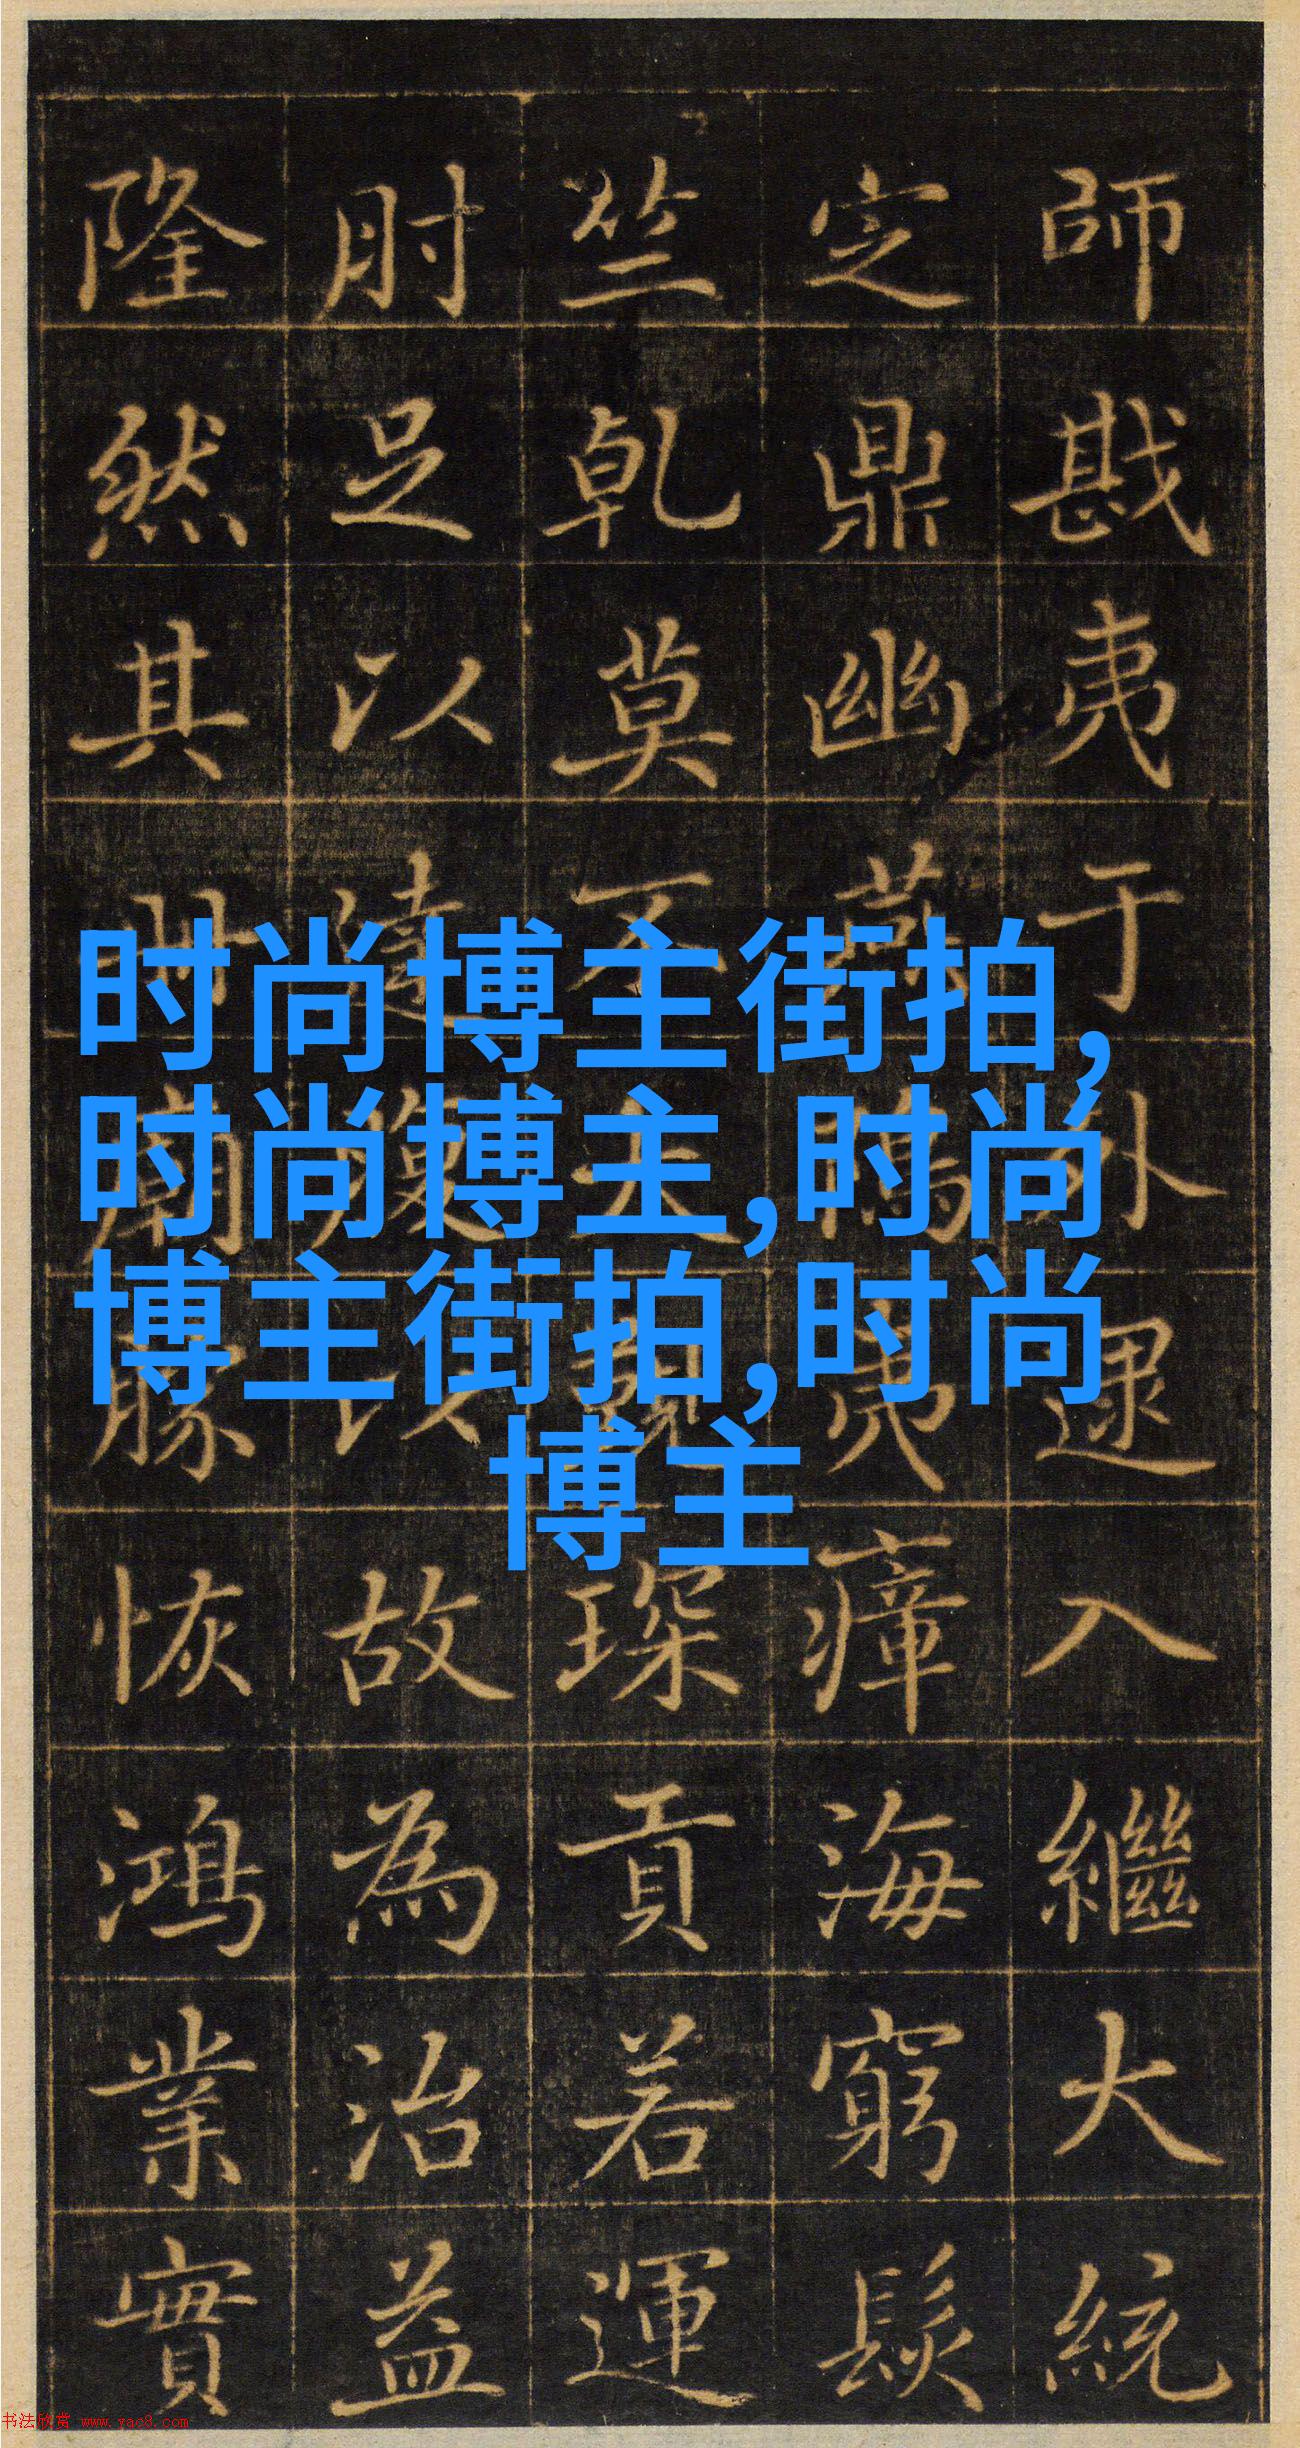 師戡夷于外逮入繼大統
定鼎幽燕夷瘴海窮髮
竺乾莫不琛貢若運
肘足以達以故為治益
隆然其廟勝恢鴻業實
时尚博主街拍,
时尚博主,时尚
博主街拍,时尚
博主
书法欣赏 www.yac8.com